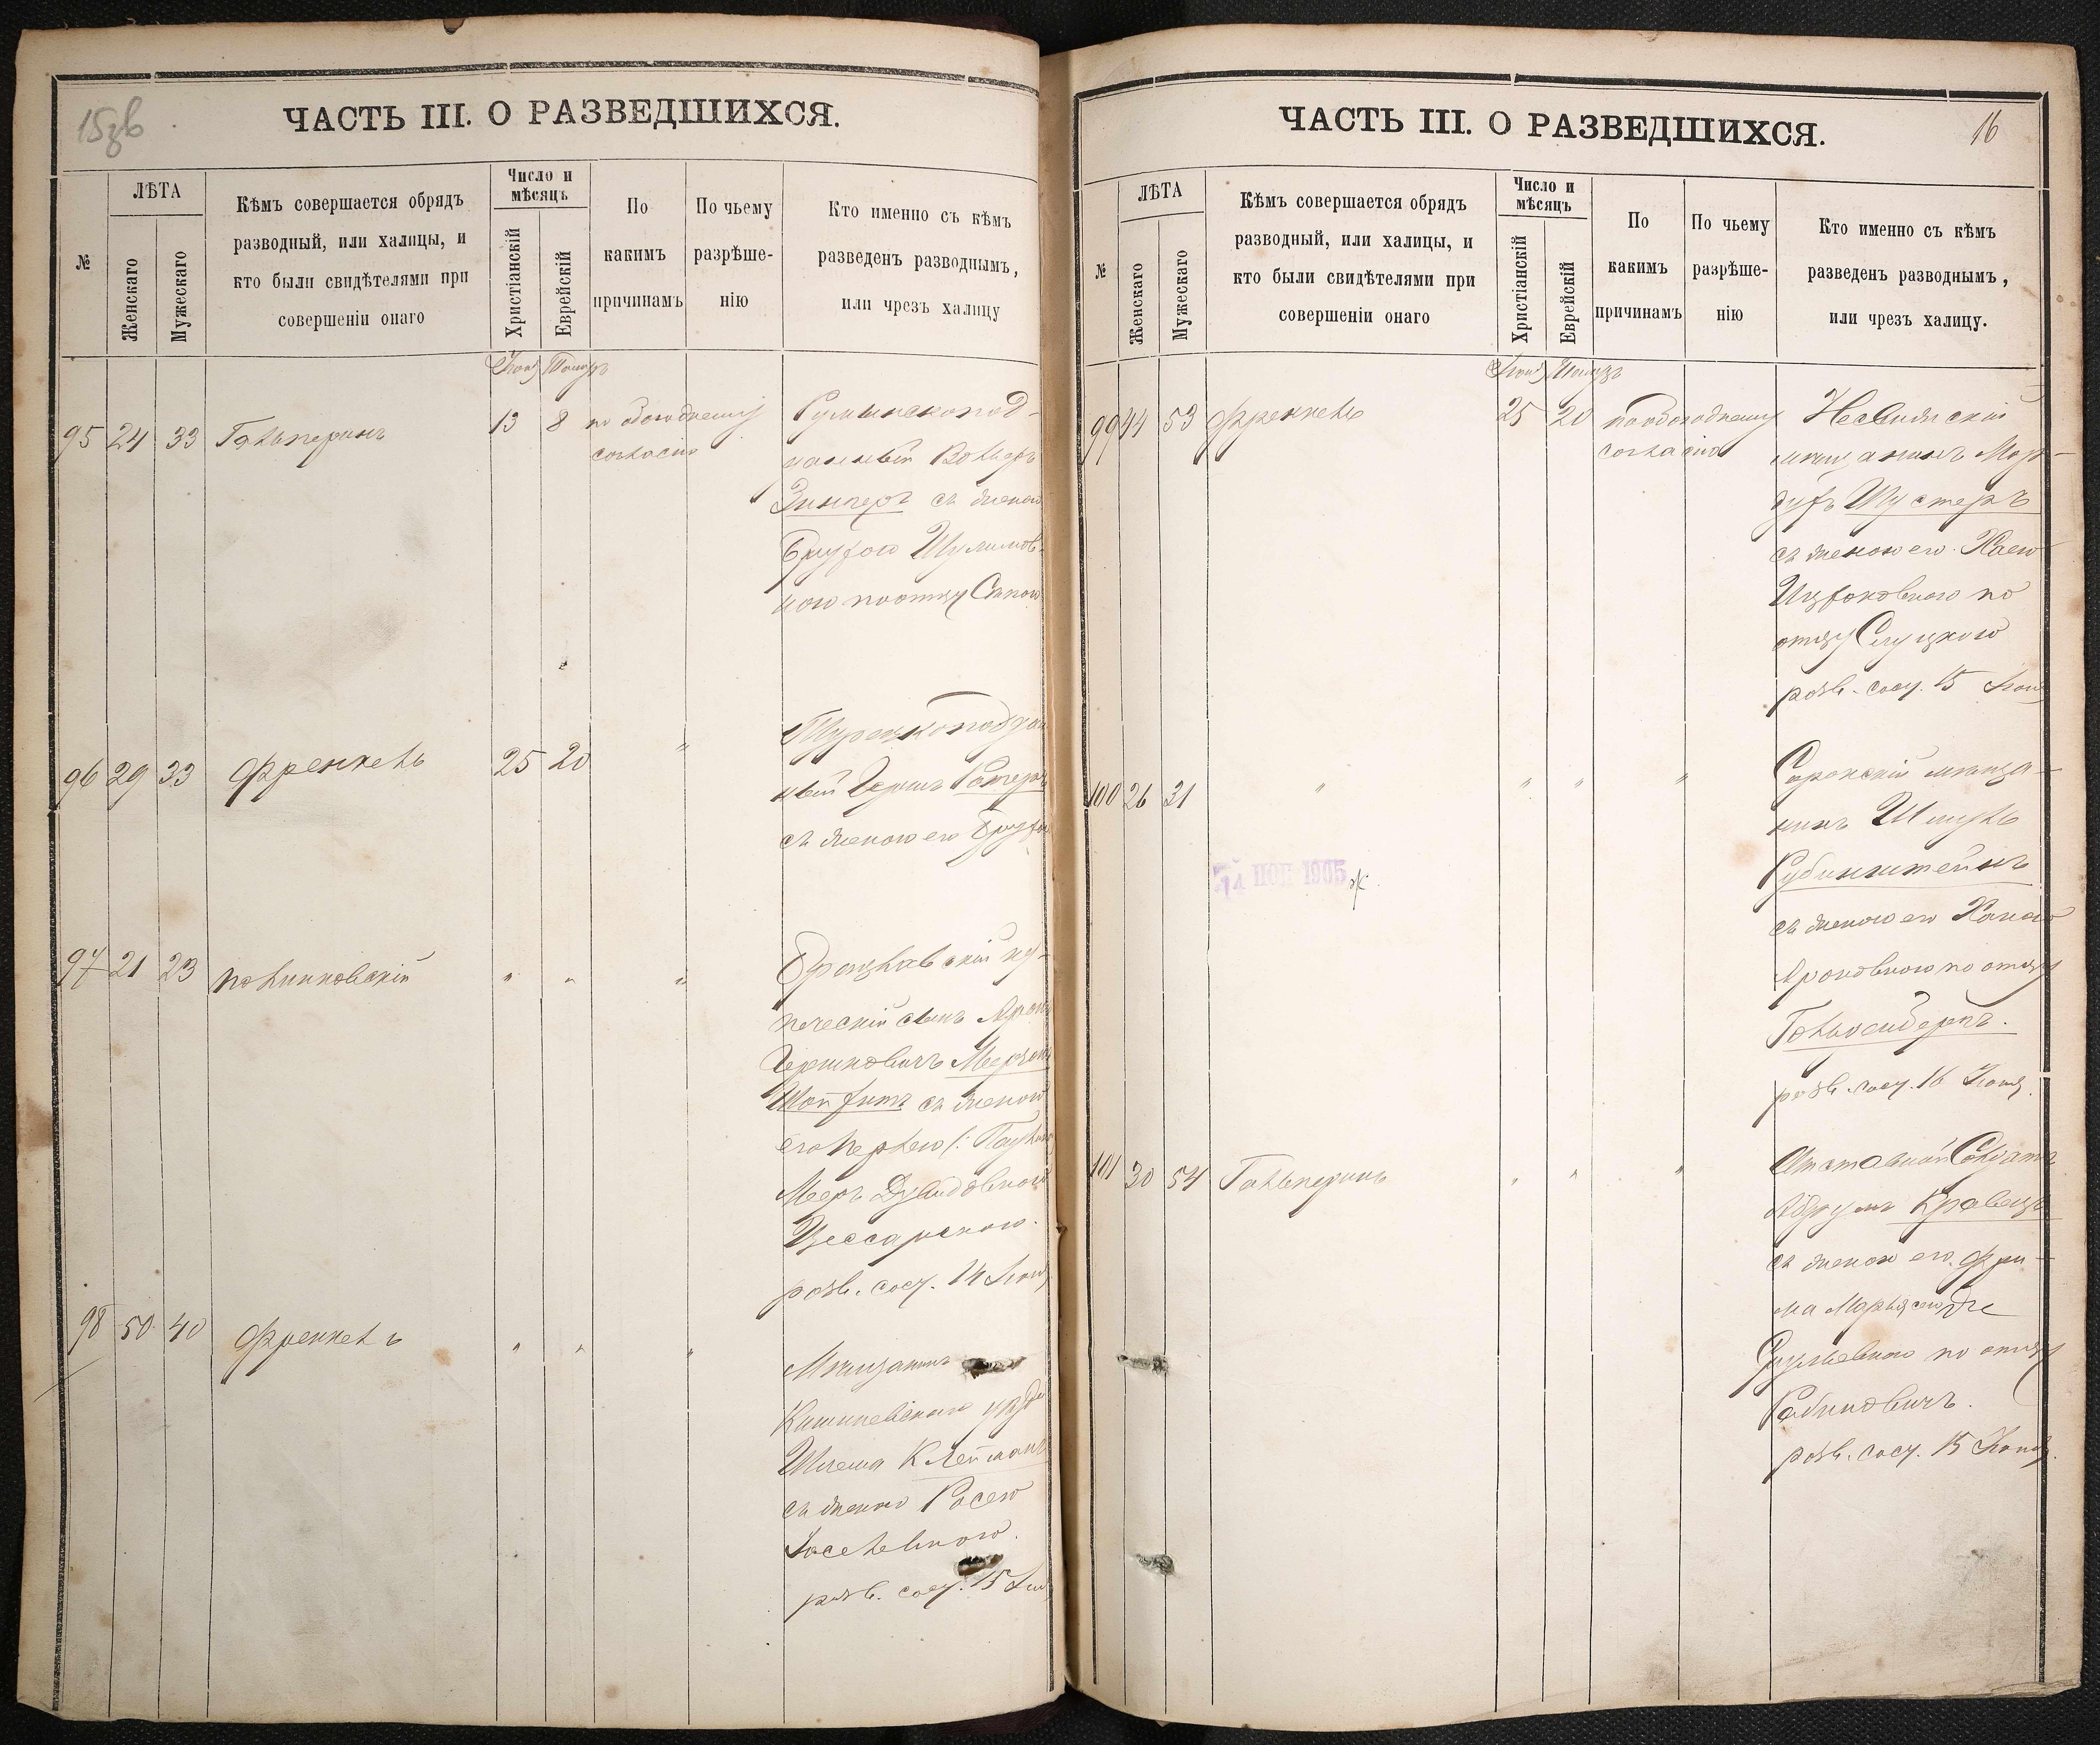 15зв
ЧАСТЬ III. О РАЗВЕДШИХСЯ.
№
ЛѢТА
Женскаго
Мужескаго
Кѣмъ совершается обрядъ
разводный, или халицы, и
кто были свидѣтелями при
совершеніи онаго
Число и
мѣсяцъ
Христіанскій
Еврейскій
По
какимъ
причинамъ
По чьему
разрѣше-
нію
Кто именно съ кѣмъ
разведенъ разводнымъ,
или чрезъ халицу
95 24 33 Гальперинъ 13 8 по обоюдному
согласію
Румынскопод-
данный Вольфъ
Зингеръ съ женою
Шулимов-
ною по отцу
96 29 33 Френкель 25 20 "
Турецкоподдан
ный Гершъ
съ женою его
97 21 23 Полинковскій " " "
Брацлавскій ку-
печескій сынъ Аронъ
Гершковичъ
съ женою
его Перлею
Меръ Дувидовной
Цессарскою.
разв. сост. 14 Іюня
98 50 40 Френкель " " "
Мѣщанинъ
Кишиневскаго уѣзда
Шлема Клейманъ
съ женою Росею
Іоселевною.
разв. сост. 15 Іюн
16
ЧАСТЬ III. О РАЗВЕДШИХСЯ.
№
ЛѢТА
Женскаго
Мужескаго
Кѣмъ совершается обрядъ
разводный, или халицы, и
кто были свидѣтелями при
совершеніи онаго
Число и
мѣсяцъ
Христіанскій
Еврейскій
По
какимъ
причинамъ
По чьему
разрѣше-
нію
Кто именно съ кѣмъ
разведенъ разводнымъ,
или чрезъ халицу.
99 44 53 Френкель 25 20 по обоюдному
согласію
Несвижскій
мѣщанинъ Мор-
духъ Шустеръ
съ женою его Хаею
Ицковною по
отцу Слуцкою
разв. сост. 15 Іюня
100 26 31 " " " "
Сорокскій мѣща-
нинъ Шмуль
Рубинштейнъ
съ женою его Ханою
Ароновною по отцу
Гольденбергъ.
разв. сост. 16 Іюня.
1905
101 30 54 Гальперинъ " " "
Отставной Солдатъ
Абрумъ Кравецъ
съ женою его Фри-
ма
по отцу
Рабиновичъ.
разв. сост. 15 Іюня.